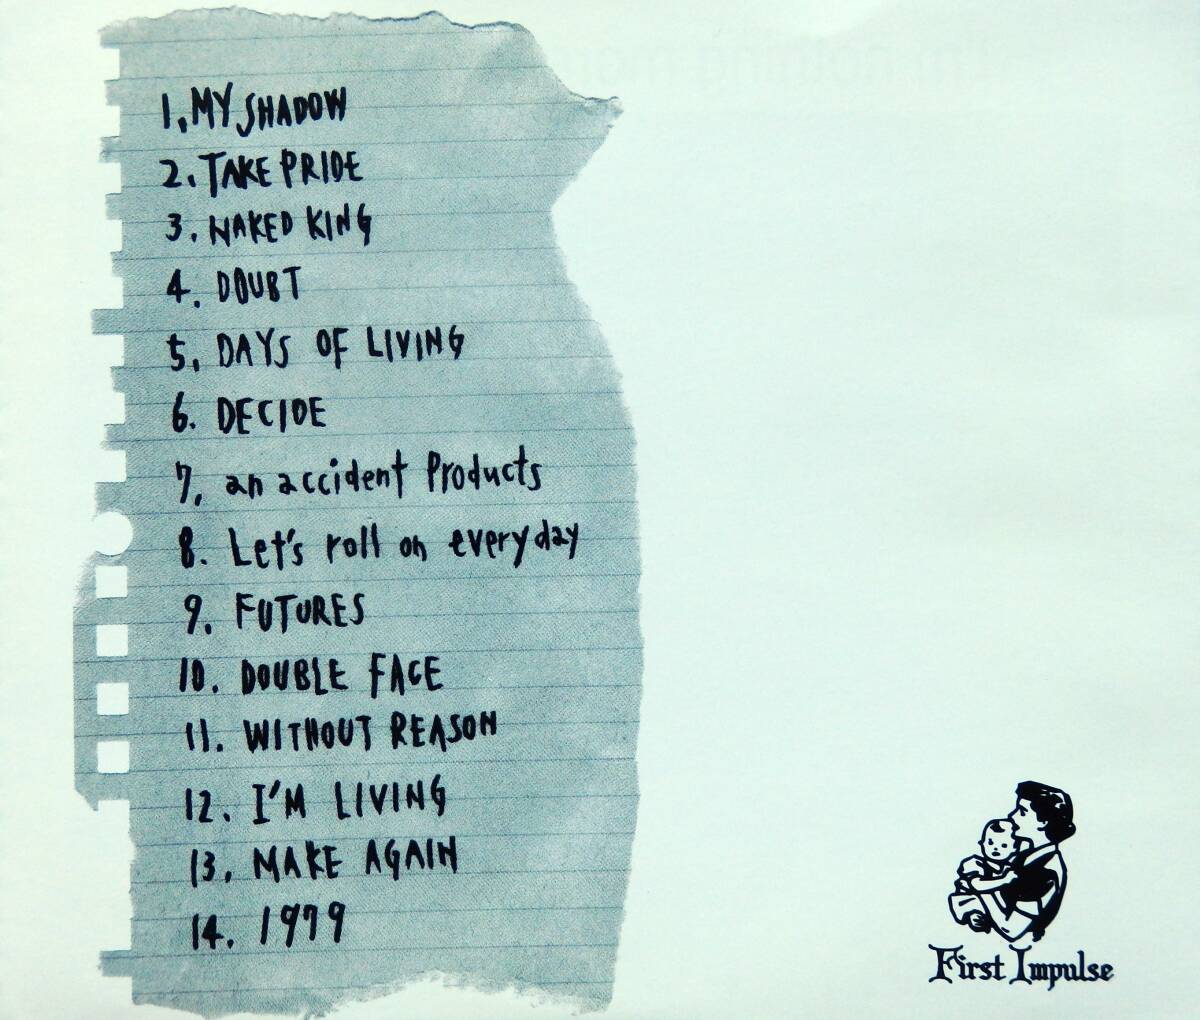 1. MY SHADOW
2. TAKE PRIDE
3. NAKED KING
4. DOUBT
5. DAYS OF LIVING
6. DECIDE
7. an accident Products
8. Let's roll on everyday
9. FUTURES
10. DOUBLE FACE
11. WITHOUT REASON
12. I'M LIVING
13. MAKE AGAIN
14. 1979
First Impulse